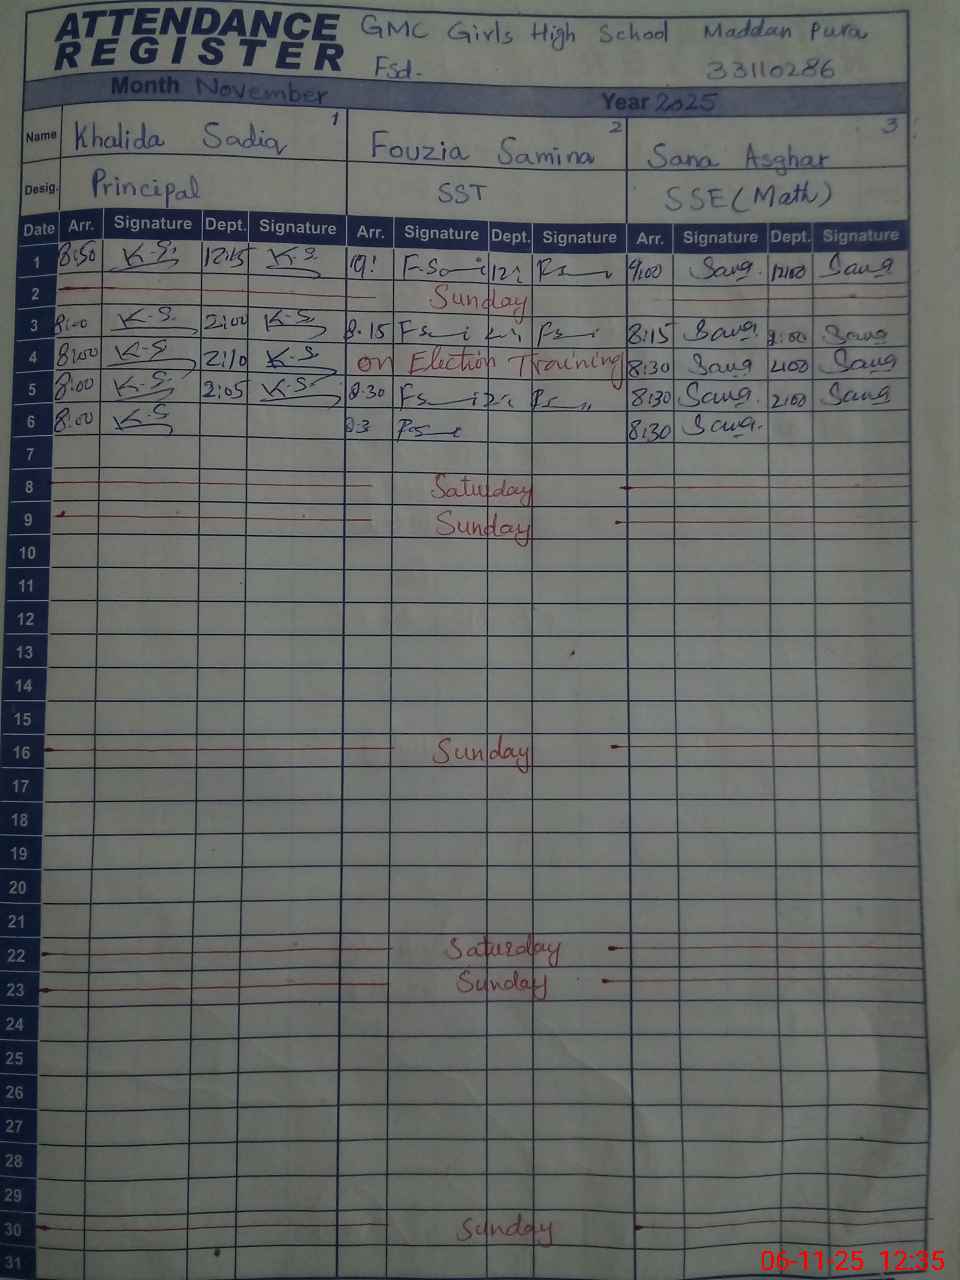 ATTENDANCE REGISTER GMC Girls High School Maddan Pura
Fsd. 33110286
Month November Year 2025
Name Khalida Sadiq 1 Fouzia Samina 2 Sana Asghar 3
Desig. Principal SST SSE (Math)
Date Arr. Signature Dept. Signature Arr. Signature Dept. Signature Arr. Signature Dept. Signature
1 8:50 K-S. 12:15 K-S. 9:00 Sana 12:00 Sana
2 Sunday
3 8:00 K-S. 2:00 K-S. 8:15 8:15 Sana 2:00 Sana
4 8:00 K-S 2:10 K-S. on Election Training 8:30 Sana 4:00 Sana
5 8:00 K-S 2:05 K-S 8:30 8:30 Sana 2:00 Sana
6 8:00 K-S 8:30 Sana
7
8 Saturday
9 Sunday
10
11
12
13
14
15
16 Sunday
17
18
19
20
21
22 Saturday
23 Sunday
24
25
26
27
28
29
30 Sunday
31
06-11-25 12:35